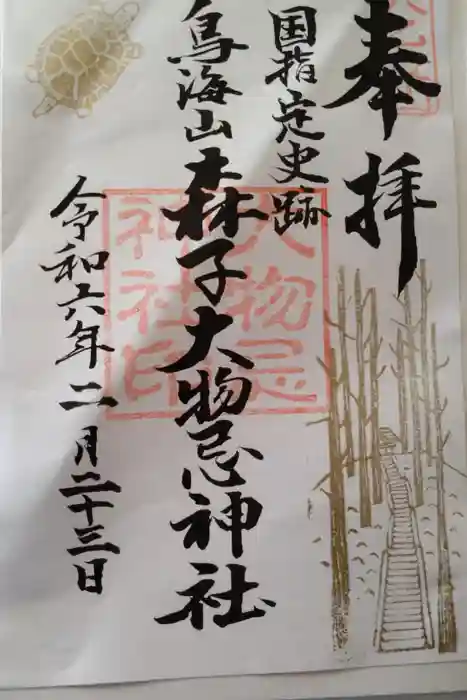 奉拝
国指定史跡
鳥海山森子大物忌神社
令和六年二月二十三日
大物忌
神社印